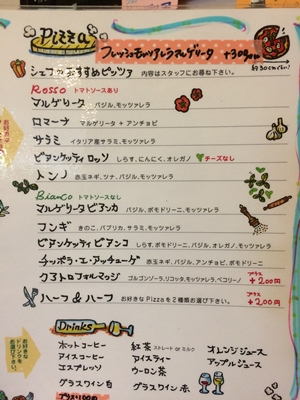 Pizza
フレッシュモッツァレラマルゲリータ +300
約30cmぐらい!
シェフのおすすめピッツァ 内容はスタッフにお尋ね下さい。
Rosso トマトソースあり
マルゲリータ バジル、モッツァレラ
ロマーナ マルゲリータ + アンチョビ
サラミ イタリア産サラミ、モッツァレラ
ビアンケッティ ロッソ しらす、にんにく、オレガノ チーズなし
トンノ 赤玉ネギ、ツナ、バジル、モッツァレラ
Bianco トマトソースなし
マルゲリータ ビアンカ バジル、ポモドリーニ、モッツァレラ
フンギ きのこ、パプリカ、サラミ、モッツァレラ
ビアンケッティ ビアンコ しらす、ポモドリーニ、バジル、オレガノ、モッツァレラ
チッポラ・エ・アッチューゲ 赤玉ネギ、バジル、アンチョビ、ポモドリーニ
クワトロフォルマッジ ゴルゴンゾーラ、リコッタ、モッツァレラ、ペコリーノ プラス +200円
ハーフ & ハーフ お好きな Pizza を 2種類お選び下さい。 プラス +200円
お好きなドリンクをお選び下さい。
Drinks
ホットコーヒー 紅茶 ストレート or ミルク オレンジジュース
アイスコーヒー アイスティー アップルジュース
エスプレッソ ウーロン茶
グラスワイン 白 グラスワイン 赤
プラス100円